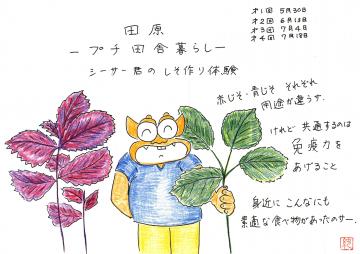 田原
ープチ田舎暮らしー
シーサー君のしそ作り体験
オ1回 5月30日
オ2回 6月13日
オ3回 7月4日
オ4回 7月18日
赤じそ・青じそ それぞれ
用途が違うサ。
けれど 共通するのは
免疫力を
あげること
身近に こんなにも
素適な食べ物があったのサー。